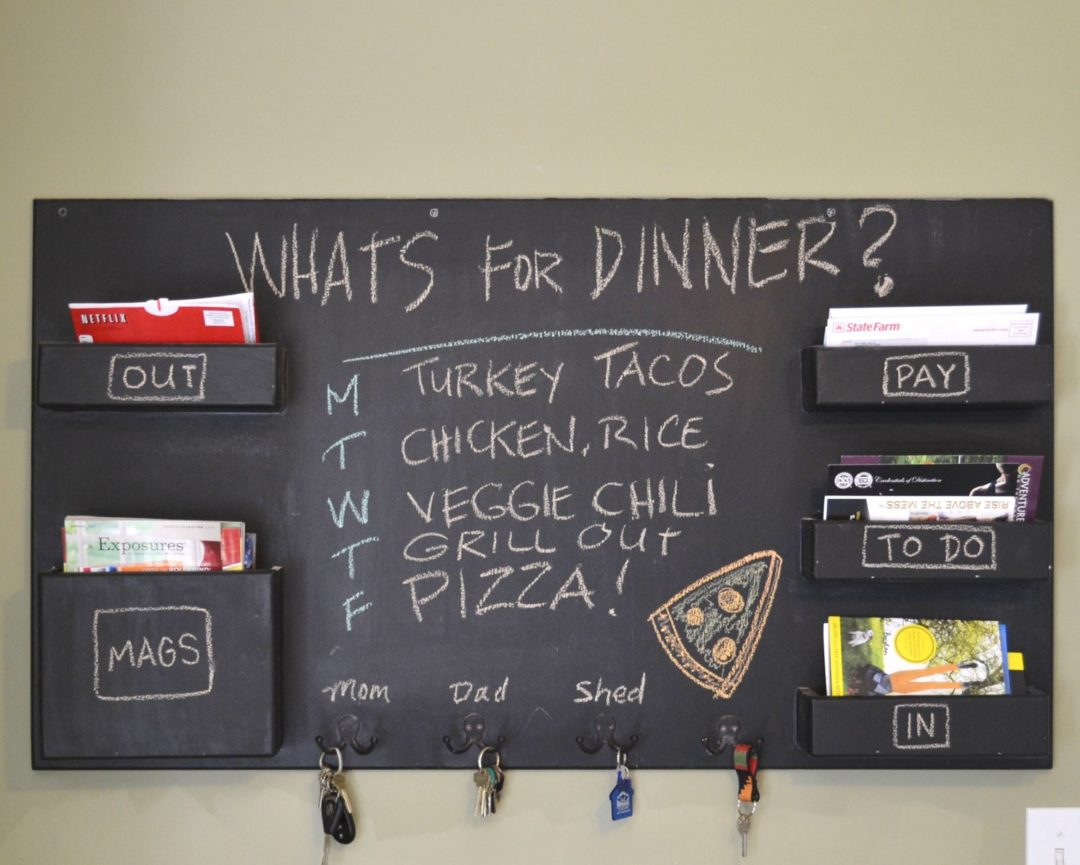 WHATS FOR DINNER?
NETFLIX
OUT
StateFarm
PAY
M TURKEY TACOS
T CHICKEN, RICE
W VEGGIE CHILI
T GRILL OUT
F PIZZA!
Credentials of Distinction
ADVENTURE
RISE ABOVE THE MESS
TO DO
Exposures
MAGS
Mom Dad Shed
IN